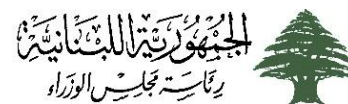 الجمهورية اللبنانية
رئاسة مجلس الوزراء